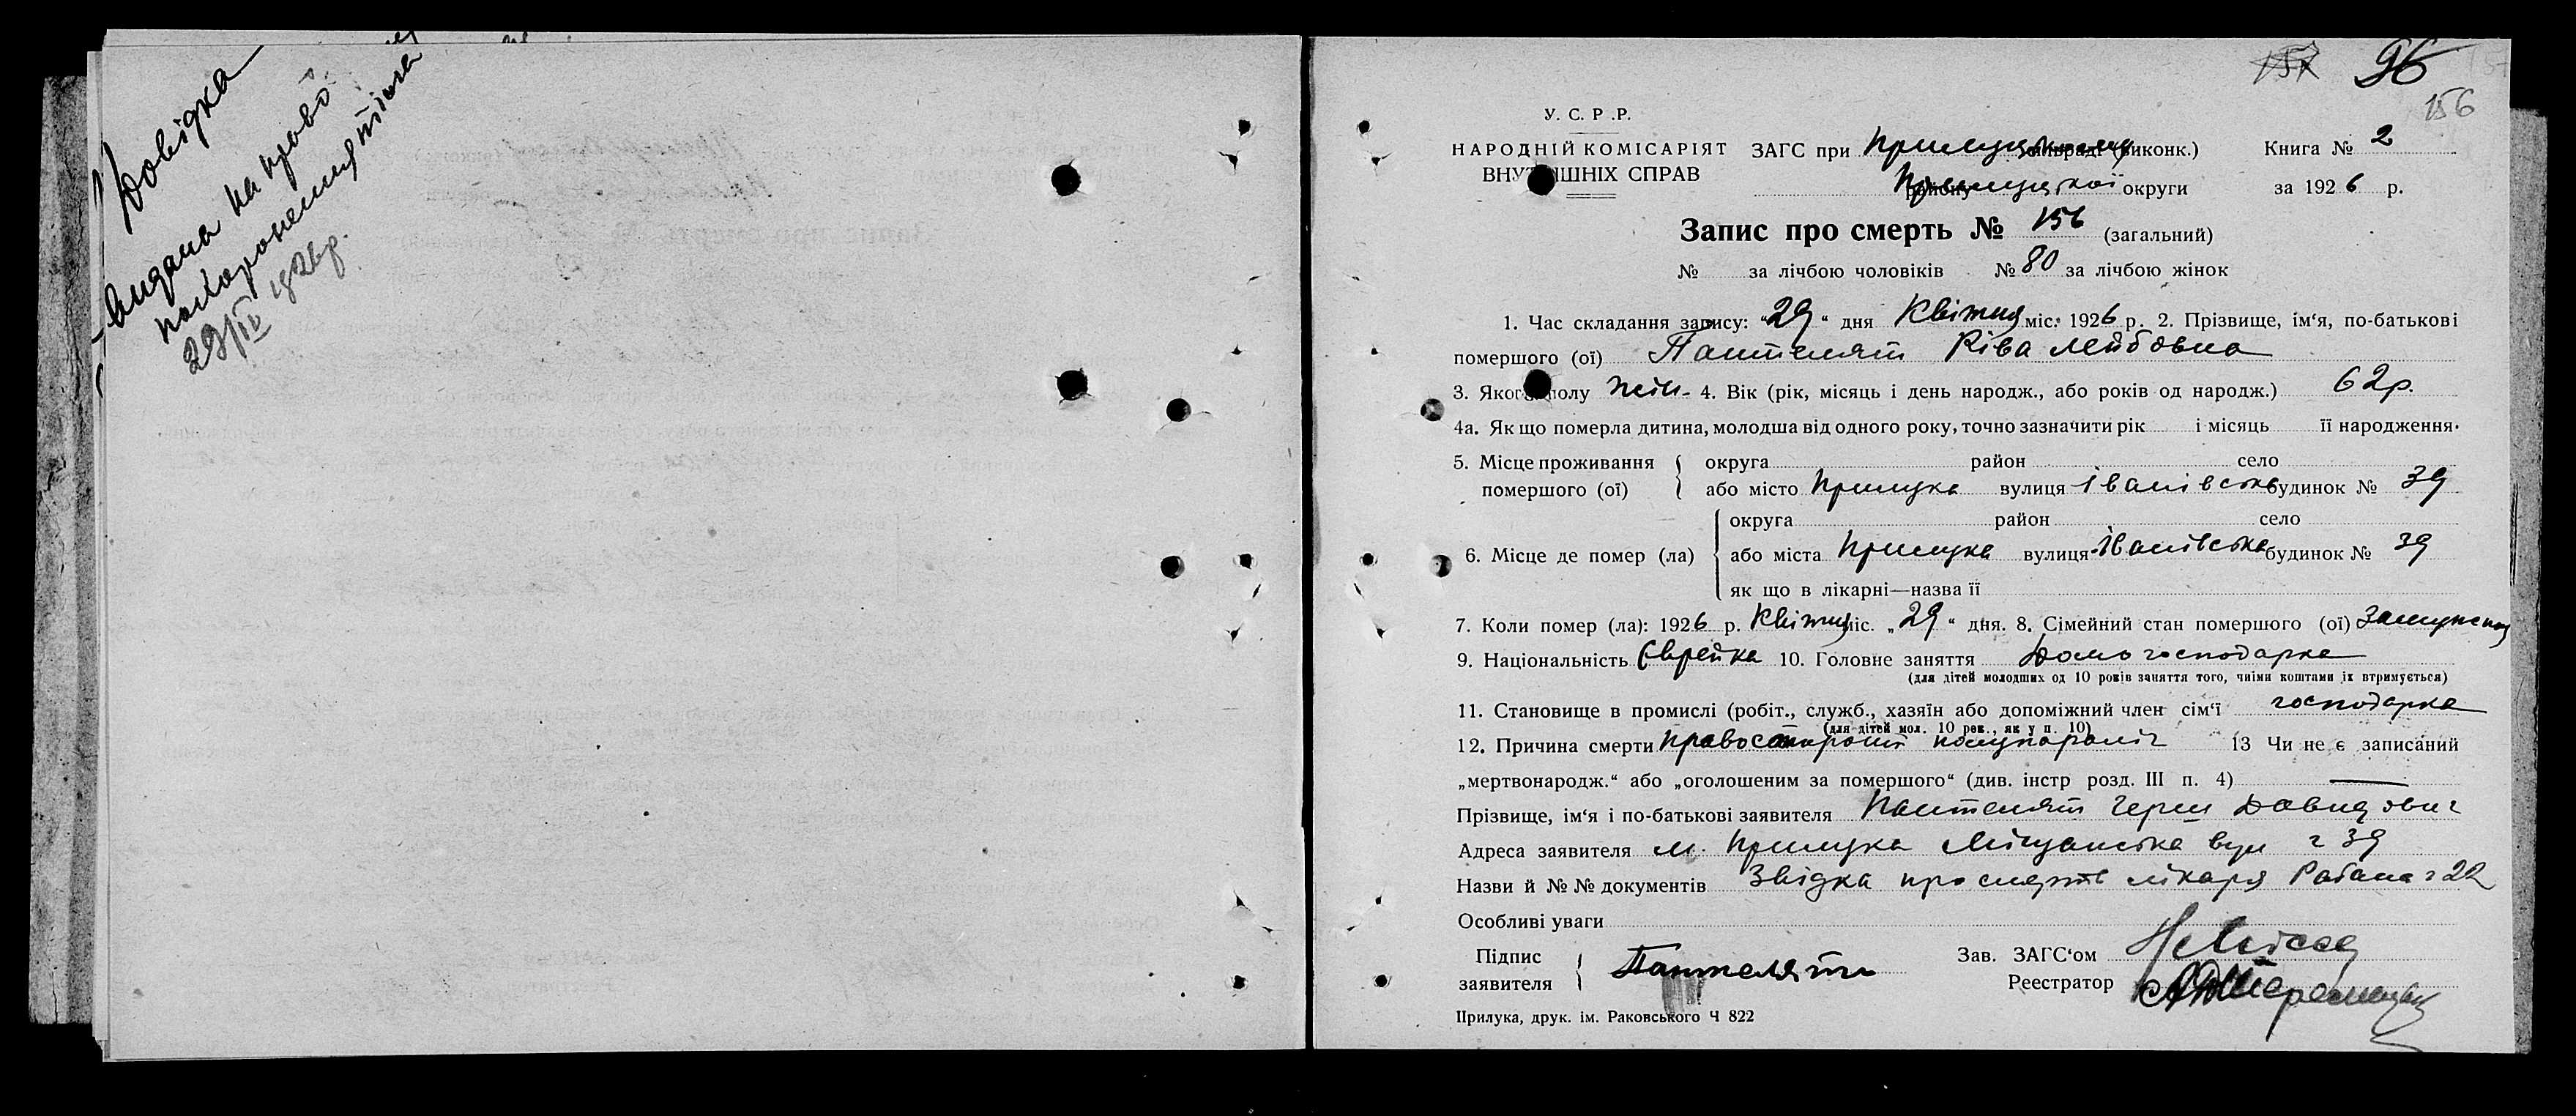 Довідка
видана на право
похоронення тіла
29/IV 1926р.
157 96
156
У. С. Р .Р.
НАРОДНІЙ КОМІСАРІЯТ ЗАГС при Прилуцькому (виконк.) Книга № 2
ВНУТРІШНІХ СПРАВ Прилуцької округи за 1926 р.
Запис про смерть № 156 (загальний)
№ за лічбою чоловіків № 80 за лічбою жінок
1. Час складання запису: "29" дня Квітня міс. 1926 р. 2. Прізвище, ім'я, по-батькові
помершого (ої) Пантелят Ріва Лейбовна
3. Якого полу жін. 4. Вік (рік, місяць і день народж., або років од народж.) 62р.
4а. Як що померла дитина, молодша від одного року, точно зазначити рік і місяць її народження.
5. Місце проживання { округа район село
помершого (ої) або місто Прилука вулиця Іванівська будинок № 39
округа район село
6. Місце де помер (ла) { або міста Прилука вулиця Іванівська будинок № 39
як що в лікарні—назва її
7. Коли помер (ла): 1926 р. Квітня міс. „29" дня. 8. Сімейний стан помершого (ої) Замужняя
9. Національність Єврейка 10. Головне заняття Домогосподарка
(для дітей молодших од 10 років заняття того, чиїми коштами їх втримується)
11. Становище в промислі (робіт., служб., хазяїн або допоміжний член сім'ї господарка
(для дітей мол. 10 рок., як у п. 10)
12. Причина смерти правосторонній 13 Чи не є записаний
„мертвонародж." або „оголошеним за помершого" (див. інстр розд. III п. 4) —
Прізвище, ім'я і по-батькові заявителя Пантелят Герш Давидович
Адреса заявителя м. Прилука Міщанська вул ч 39
Назви й № № документів Звідка про смерть лікаря ч 22
Особливі уваги
Підпис Зав. ЗАГС'ом
заявителя { Пантелят Реестратор
Прилука, друк. ім. Раковського Ч 822